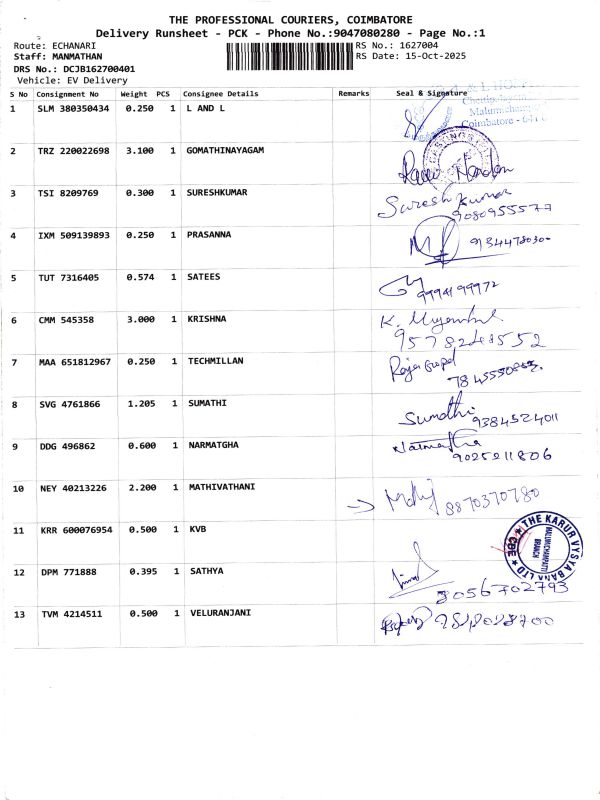 THE PROFESSIONAL COURIERS, COIMBATORE
Delivery Runsheet - PCK - Phone No.:9047080280 - Page No.:1
Route: ECHANARI RS No.: 1627004
Staff: MANMATHAN RS Date: 15-Oct-2025
DRS No.: DCJB162700401
Vehicle: EV Delivery
S No Consignment No Weight PCS Consignee Details Remarks Seal & Signature
1 SLM 380350434 0.250 1 L AND L
Coimbatore - 641
2 TRZ 220022698 3.100 1 GOMATHINAYAGAM
3 TSI 8209769 0.300 1 SURESHKUMAR Suresh Kumar
9080955577
4 IXM 509139893 0.250 1 PRASANNA
5 TUT 7316405 0.574 1 SATEES
9994199972
6 CMM 545358 3.000 1 KRISHNA K.
9578248552
7 MAA 651812967 0.250 1 TECHMILLAN
8 SVG 4761866 1.205 1 SUMATHI Sumathi
9384524011
9 DDG 496862 0.600 1 NARMATGHA Narmatha
9025211806
10 NEY 40213226 2.200 1 MATHIVATHANI
8870370780
11 KRR 600076954 0.500 1 KVB
THE KARUR VYSYA BANK LTD
CBE
BRANCH
12 DPM 771888 0.395 1 SATHYA
8056702793
13 TVM 4214511 0.500 1 VELURANJANI